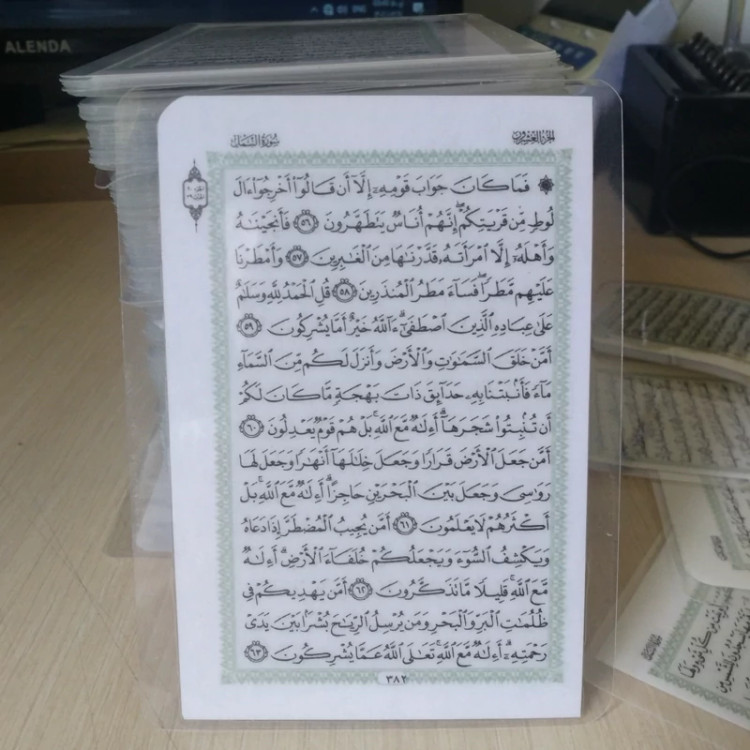 ALENDA
سورة النمل
الجزء العشرون
فَمَا كَانَ جَوَابَ قَوْمِهِۦٓ إِلَّآ أَن قَالُوٓا۟ أَخْرِجُوٓا۟ ءَالَ
لُوطٍ مِّن قَرْيَتِكُمْ ۖ إِنَّهُمْ أُنَاسٌ يَتَطَهَّرُونَ ٥٦ فَأَنجَيْنَٰهُ
وَأَهْلَهُۥٓ إِلَّا ٱمْرَأَتَهُۥ قَدَّرْنَٰهَا مِنَ ٱلْغَٰبِرِينَ ٥٧ وَأَمْطَرْنَا
عَلَيْهِم مَّطَرًا ۖ فَسَآءَ مَطَرُ ٱلْمُنذَرِينَ ٥٨ قُلِ ٱلْحَمْدُ لِلَّهِ وَسَلَٰمٌ
عَلَىٰ عِبَادِهِ ٱلَّذِينَ ٱصْطَفَىٰٓ ۗ ءَآللَّهُ خَيْرٌ أَمَّا يُشْرِكُونَ ٥٩
أَمَّنْ خَلَقَ ٱلسَّمَٰوَٰتِ وَٱلْأَرْضَ وَأَنزَلَ لَكُم مِّنَ ٱلسَّمَآءِ
مَآءً فَأَنۢبَتْنَا بِهِۦ حَدَآئِقَ ذَاتَ بَهْجَةٍ مَّا كَانَ لَكُمْ
أَن تُنۢبِتُوا۟ شَجَرَهَآ ۗ أَءِلَٰهٌ مَّعَ ٱللَّهِ ۚ بَلْ هُمْ قَوْمٌ يَعْدِلُونَ ٦٠
أَمَّن جَعَلَ ٱلْأَرْضَ قَرَارًا وَجَعَلَ خِلَٰلَهَآ أَنْهَٰرًا وَجَعَلَ لَهَا
رَوَٰسِىَ وَجَعَلَ بَيْنَ ٱلْبَحْرَيْنِ حَاجِزًا ۗ أَءِلَٰهٌ مَّعَ ٱللَّهِ ۚ بَلْ
أَكْثَرُهُمْ لَا يَعْلَمُونَ ٦١ أَمَّن يُجِيبُ ٱلْمُضْطَرَّ إِذَا دَعَاهُ
وَيَكْشِفُ ٱلسُّوٓءَ وَيَجْعَلُكُمْ خُلَفَآءَ ٱلْأَرْضِ ۗ أَءِلَٰهٌ
مَّعَ ٱللَّهِ ۚ قَلِيلًا مَّا تَذَكَّرُونَ ٦٢ أَمَّن يَهْدِيكُمْ فِى
ظُلُمَٰتِ ٱلْبَرِّ وَٱلْبَحْرِ وَمَن يُرْسِلُ ٱلرِّيَٰحَ بُشْرًۢا بَيْنَ يَدَىْ
رَحْمَتِهِۦٓ ۗ أَءِلَٰهٌ مَّعَ ٱللَّهِ ۚ تَعَٰلَى ٱللَّهُ عَمَّا يُشْرِكُونَ ٦٣
٣٨٢